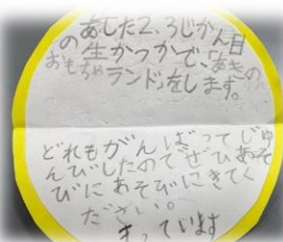 あした2、3じかん目
の生かつかで、「あきの
おもちゃランド」をします。
どれもがんばってじゅ
んびしたのでぜひあそ
びにあそびにきてく
ださい。
まっています